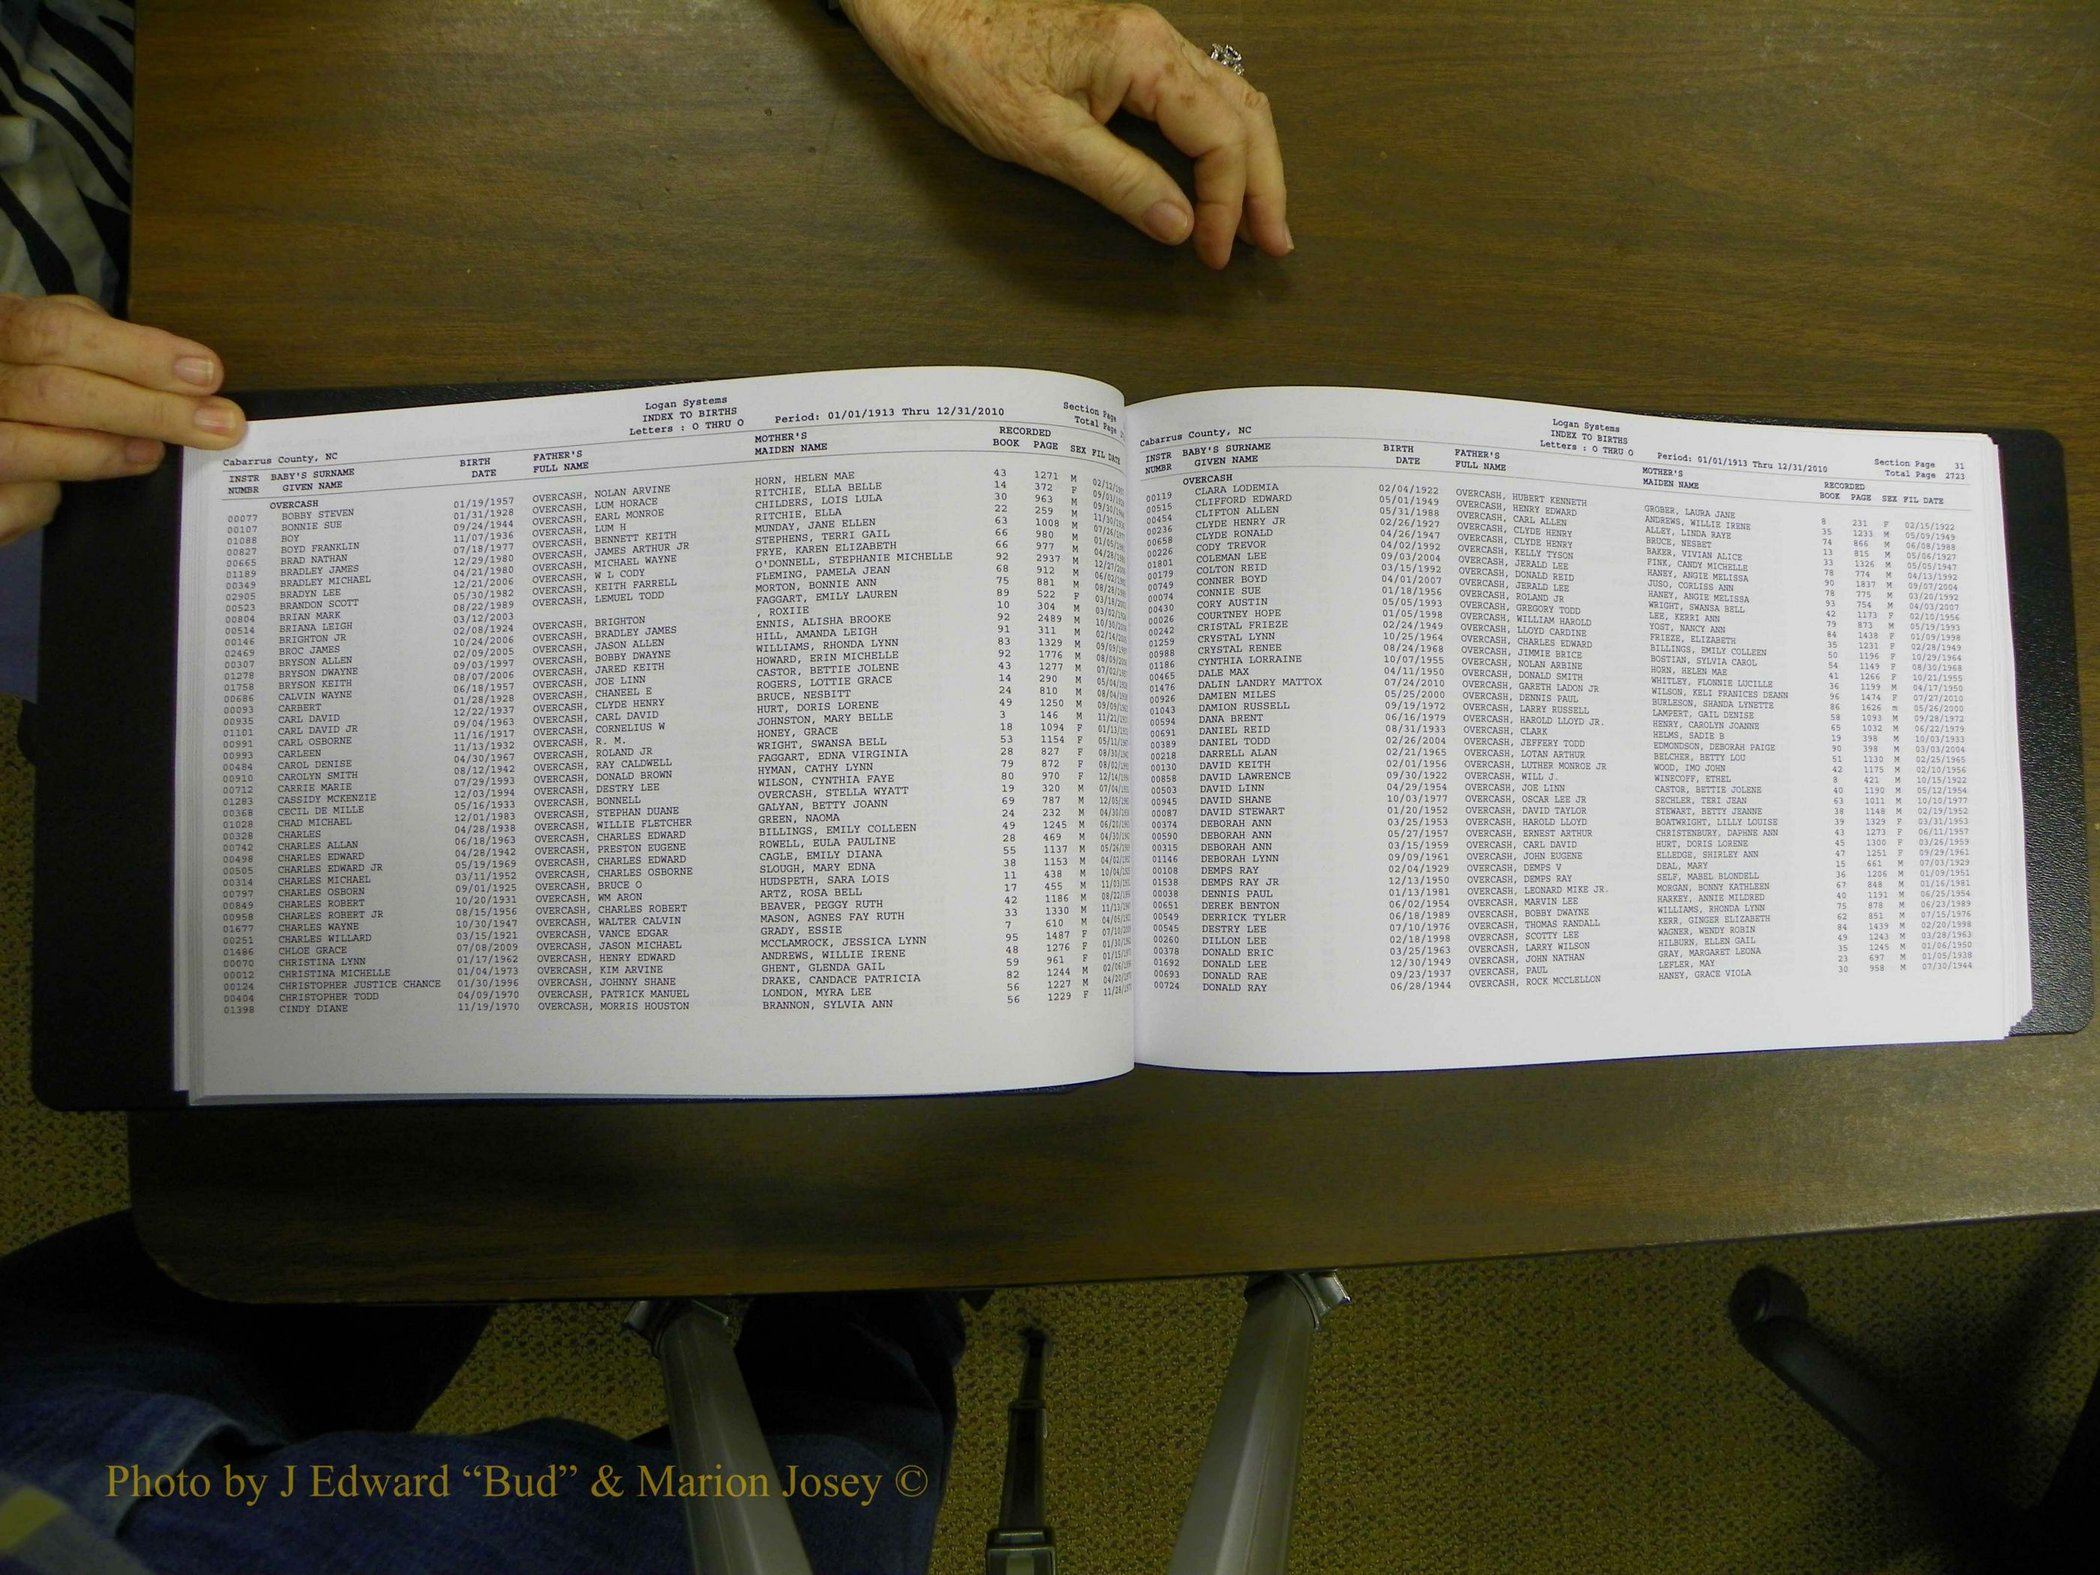 Logan Systems
INDEX TO BIRTHS
Letters : O THRU O Period: 01/01/1913 Thru 12/31/2010
Section Page
Total Page
Cabarrus County, NC
INSTR BABY'S SURNAME BIRTH FATHER'S MOTHER'S RECORDED
NUMBR GIVEN NAME DATE FULL NAME MAIDEN NAME BOOK PAGE SEX FIL DATE
OVERCASH
00077 BOBBY STEVEN 01/19/1957 OVERCASH, NOLAN ARVINE HORN, HELEN MAE 43 1271 M
00107 BONNIE SUE 01/31/1928 OVERCASH, LUM HORACE RITCHIE, ELLA BELLE 14 372 F
01088 BOY 09/24/1944 OVERCASH, EARL MONROE CHILDERS, LOIS LULA 30 963 M
00827 BOYD FRANKLIN 11/07/1936 OVERCASH, LUM H RITCHIE, ELLA 22 259 M
00665 BRAD NATHAN 07/18/1977 OVERCASH, BENNETT KEITH MUNDAY, JANE ELLEN 63 1008 M
01189 BRADLEY JAMES 12/29/1980 OVERCASH, JAMES ARTHUR JR STEPHENS, TERRI GAIL 66 980 M
00349 BRADLEY MICHAEL 04/21/1980 OVERCASH, MICHAEL WAYNE FRYE, KAREN ELIZABETH 66 977 M
02905 BRADYN LEE 12/21/2006 OVERCASH, W L CODY O'DONNELL, STEPHANIE MICHELLE 92 2937 M
00523 BRANDON SCOTT 05/30/1982 OVERCASH, KEITH FARRELL FLEMING, PAMELA JEAN 68 912 M
00804 BRIAN MARK 08/22/1989 OVERCASH, LEMUEL TODD MORTON, BONNIE ANN 75 881 M
00514 BRIANA LEIGH 03/12/2003 FAGGART, EMILY LAUREN 89 522 F
00146 BRIGHTON JR 02/08/1924 OVERCASH, BRIGHTON , ROXIIE 10 304 M
02469 BROC JAMES 10/24/2006 OVERCASH, BRADLEY JAMES ENNIS, ALISHA BROOKE 92 2489 M
00307 BRYSON ALLEN 02/09/2005 OVERCASH, JASON ALLEN HILL, AMANDA LEIGH 91 311 M
01278 BRYSON DWAYNE 09/03/1997 OVERCASH, BOBBY DWAYNE WILLIAMS, RHONDA LYNN 83 1329 M
01758 BRYSON KEITH 08/07/2006 OVERCASH, JARED KEITH HOWARD, ERIN MICHELLE 92 1776 M
00686 CALVIN WAYNE 06/18/1957 OVERCASH, JOE LINN CASTOR, BETTIE JOLENE 43 1277 M
00093 CARBERT 01/28/1928 OVERCASH, CHANEEL E ROGERS, LOTTIE GRACE 14 290 M
00935 CARL DAVID 12/22/1937 OVERCASH, CLYDE HENRY BRUCE, NESBITT 24 810 M
01101 CARL DAVID JR 09/04/1963 OVERCASH, CARL DAVID HURT, DORIS LORENE 49 1250 M
00991 CARL OSBORNE 11/16/1917 OVERCASH, CORNELIUS W JOHNSTON, MARY BELLE 3 146 M
00993 CARLEEN 11/13/1932 OVERCASH, R. M. HONEY, GRACE 18 1094 F
00484 CAROL DENISE 04/30/1967 OVERCASH, ROLAND JR WRIGHT, SWANSA BELL 53 1154 F
00910 CAROLYN SMITH 08/12/1942 OVERCASH, RAY CALDWELL FAGGART, EDNA VIRGINIA 28 827 F
00712 CARRIE MARIE 07/29/1993 OVERCASH, DONALD BROWN HYMAN, CATHY LYNN 79 872 F
01283 CASSIDY MCKENZIE 12/03/1994 OVERCASH, DESTRY LEE WILSON, CYNTHIA FAYE 80 970 F
00368 CECIL DE MILLE 05/16/1933 OVERCASH, BONNELL OVERCASH, STELLA WYATT 19 320 M
01028 CHAD MICHAEL 12/01/1983 OVERCASH, STEPHAN DUANE GALYAN, BETTY JOANN 69 787 M
00328 CHARLES 04/28/1938 OVERCASH, WILLIE FLETCHER GREEN, NAOMA 24 232 M
00742 CHARLES ALLAN 06/18/1963 OVERCASH, CHARLES EDWARD BILLINGS, EMILY COLLEEN 49 1245 M
00498 CHARLES EDWARD 04/28/1942 OVERCASH, PRESTON EUGENE ROWELL, EULA PAULINE 28 469 M
00505 CHARLES EDWARD JR 05/19/1969 OVERCASH, CHARLES EDWARD CAGLE, EMILY DIANA 55 1137 M
00314 CHARLES MICHAEL 03/11/1952 OVERCASH, CHARLES OSBORNE SLOUGH, MARY EDNA 38 1153 M
00797 CHARLES OSBORN 09/01/1925 OVERCASH, BRUCE O HUDSPETH, SARA LOIS 11 438 M
00849 CHARLES ROBERT 10/20/1931 OVERCASH, WM ARON ARTZ, ROSA BELL 17 455 M
00958 CHARLES ROBERT JR 08/15/1956 OVERCASH, CHARLES ROBERT BEAVER, PEGGY RUTH 42 1186 M
01677 CHARLES WAYNE 10/30/1947 OVERCASH, WALTER CALVIN MASON, AGNES FAY RUTH 33 1330 M
00251 CHARLES WILLARD 03/15/1921 OVERCASH, VANCE EDGAR GRADY, ESSIE 7 610 M
01486 CHLOE GRACE 07/08/2009 OVERCASH, JASON MICHAEL MCCLAMROCK, JESSICA LYNN 95 1487 F
00070 CHRISTINA LYNN 01/17/1962 OVERCASH, HENRY EDWARD ANDREWS, WILLIE IRENE 48 1276 F
00012 CHRISTINA MICHELLE 01/04/1973 OVERCASH, KIM ARVINE GHENT, GLENDA GAIL 59 961 F
00124 CHRISTOPHER JUSTICE CHANCE 01/30/1996 OVERCASH, JOHNNY SHANE DRAKE, CANDACE PATRICIA 82 1244 M
00404 CHRISTOPHER TODD 04/09/1970 OVERCASH, PATRICK MANUEL LONDON, MYRA LEE 56 1227 M
01398 CINDY DIANE 11/19/1970 OVERCASH, MORRIS HOUSTON BRANNON, SYLVIA ANN 56 1229 F
Logan Systems
INDEX TO BIRTHS
Letters : O THRU O Period: 01/01/1913 Thru 12/31/2010
Section Page 31
Total Page 2723
Cabarrus County, NC
INSTR BABY'S SURNAME BIRTH FATHER'S MOTHER'S RECORDED
NUMBR GIVEN NAME DATE FULL NAME MAIDEN NAME BOOK PAGE SEX FIL DATE
OVERCASH
00119 CLARA LODEMIA 02/04/1922 OVERCASH, HUBERT KENNETH GROBER, LAURA JANE 8 231 F 02/15/1922
00515 CLIFFORD EDWARD 05/01/1949 OVERCASH, HENRY EDWARD ANDREWS, WILLIE IRENE 35 1233 M 05/09/1949
00454 CLIFTON ALLEN 05/31/1988 OVERCASH, CARL ALLEN ALLEY, LINDA RAYE 74 866 M 06/08/1988
00236 CLYDE HENRY JR 02/26/1927 OVERCASH, CLYDE HENRY BRUCE, NESBET 13 815 M 05/06/1927
00658 CLYDE RONALD 04/26/1947 OVERCASH, CLYDE HENRY BAKER, VIVIAN ALICE 33 1326 M 05/05/1947
00226 CODY TREVOR 04/02/1992 OVERCASH, KELLY TYSON FINK, CANDY MICHELLE 78 774 M 04/13/1992
01801 COLEMAN LEE 09/03/2004 OVERCASH, JERALD LEE HANEY, ANGIE MELISSA 90 1837 M 09/07/2004
00179 COLTON REID 03/15/1992 OVERCASH, DONALD REID JUSO, CORLISS ANN 78 775 M 03/20/1992
00749 CONNER BOYD 04/01/2007 OVERCASH, JERALD LEE HANEY, ANGIE MELISSA 93 754 M 04/03/2007
00074 CONNIE SUE 01/18/1956 OVERCASH, ROLAND JR WRIGHT, SWANSA BELL 42 1173 F 02/10/1956
00430 CORY AUSTIN 05/05/1993 OVERCASH, GREGORY TODD LEE, KERRI ANN 79 873 M 05/19/1993
00026 COURTNEY HOPE 01/05/1998 OVERCASH, WILLIAM HAROLD YOST, NANCY ANN 84 1438 F 01/09/1998
00242 CRISTAL FRIEZE 02/24/1949 OVERCASH, LLOYD CARDINE FRIEZE, ELIZABETH 35 1231 F 02/28/1949
01259 CRYSTAL LYNN 10/25/1964 OVERCASH, CHARLES EDWARD BILLINGS, EMILY COLLEEN 50 1196 F 10/29/1964
00988 CRYSTAL RENEE 08/24/1968 OVERCASH, JIMMIE BRICE BOSTIAN, SYLVIA CAROL 54 1149 F 08/30/1968
01186 CYNTHIA LORRAINE 10/07/1955 OVERCASH, NOLAN ARBINE HORN, HELEN MAE 41 1266 F 10/21/1955
00465 DALE MAX 04/11/1950 OVERCASH, DONALD SMITH WHITLEY, FLONNIE LUCILLE 36 1199 M 04/17/1950
01476 DALIN LANDRY MATTOX 07/24/2010 OVERCASH, GARETH LADON JR WILSON, KELI FRANICES DEANN 96 1474 F 07/27/2010
00926 DAMIEN MILES 05/25/2000 OVERCASH, DENNIS PAUL BURLESON, SHANDA LYNETTE 86 1626 m 05/26/2000
01043 DAMION RUSSELL 09/19/1972 OVERCASH, LARRY RUSSELL LAMPERT, GAIL DENISE 58 1093 M 09/28/1972
00594 DANA BRENT 06/16/1979 OVERCASH, HAROLD LLOYD JR. HENRY, CAROLYN JOANNE 65 1032 M 06/22/1979
00691 DANIEL REID 08/31/1933 OVERCASH, CLARK HELMS, SADIE B 19 398 M 10/03/1933
00389 DANIEL TODD 02/26/2004 OVERCASH, JEFFERY TODD EDMONDSON, DEBORAH PAIGE 90 398 M 03/03/2004
00218 DARRELL ALAN 02/21/1965 OVERCASH, LOTAN ARTHUR BELCHER, BETTY LOU 51 1130 M 02/25/1965
00130 DAVID KEITH 02/01/1956 OVERCASH, LUTHER MONROE JR WOOD, IMO JOHN 42 1175 M 02/10/1956
00858 DAVID LAWRENCE 09/30/1922 OVERCASH, WILL J. WINECOFF, ETHEL 8 421 M 10/15/1922
00503 DAVID LINN 04/29/1954 OVERCASH, JOE LINN CASTOR, BETTIE JOLENE 40 1190 M 05/12/1954
00945 DAVID SHANE 10/03/1977 OVERCASH, OSCAR LEE JR SECHLER, TERI JEAN 63 1011 M 10/10/1977
00087 DAVID STEWART 01/20/1952 OVERCASH, DAVID TAYLOR STEWART, BETTY JEANNE 38 1148 M 02/19/1952
00374 DEBORAH ANN 03/25/1953 OVERCASH, HAROLD LLOYD BOATWRIGHT, LILLY LOUISE 39 1329 F 03/31/1953
00590 DEBORAH ANN 05/27/1957 OVERCASH, ERNEST ARTHUR CHRISTENBURY, DAPHNE ANN 43 1273 F 06/11/1957
00315 DEBORAH ANN 03/15/1959 OVERCASH, CARL DAVID HURT, DORIS LORENE 45 1300 F 03/26/1959
01146 DEBORAH LYNN 09/09/1961 OVERCASH, JOHN EUGENE ELLEDGE, SHIRLEY ANN 47 1251 F 09/29/1961
00108 DEMPS RAY 02/04/1929 OVERCASH, DEMPS V DEAL, MARY 15 661 M 07/03/1929
01538 DEMPS RAY JR 12/13/1950 OVERCASH, DEMPS RAY SELF, MABEL BLONDELL 36 1206 M 01/09/1951
00038 DENNIS PAUL 01/13/1981 OVERCASH, LEONARD MIKE JR. MORGAN, BONNY KATHLEEN 67 848 M 01/16/1981
00651 DEREK BENTON 06/02/1954 OVERCASH, MARVIN LEE HARKEY, ANNIE MILDRED 40 1191 M 06/25/1954
00549 DERRICK TYLER 06/18/1989 OVERCASH, BOBBY DWAYNE WILLIAMS, RHONDA LYNN 75 878 M 06/23/1989
00545 DESTRY LEE 07/10/1976 OVERCASH, THOMAS RANDALL KERR, GINGER ELIZABETH 62 851 M 07/15/1976
00260 DILLON LEE 02/18/1998 OVERCASH, SCOTTY LEE WAGNER, WENDY ROBIN 84 1439 M 02/20/1998
00378 DONALD ERIC 03/25/1963 OVERCASH, LARRY WILSON HILBURN, ELLEN GAIL 49 1243 M 03/28/1963
01692 DONALD LEE 12/30/1949 OVERCASH, JOHN NATHAN GRAY, MARGARET LEONA 35 1245 M 01/06/1950
00693 DONALD RAE 09/23/1937 OVERCASH, PAUL LEFLER, MAY 23 697 M 01/05/1938
00724 DONALD RAY 06/28/1944 OVERCASH, ROCK MCCLELLON HANEY, GRACE VIOLA 30 958 M 07/30/1944
Photo by J Edward “Bud” & Marion Josey ©